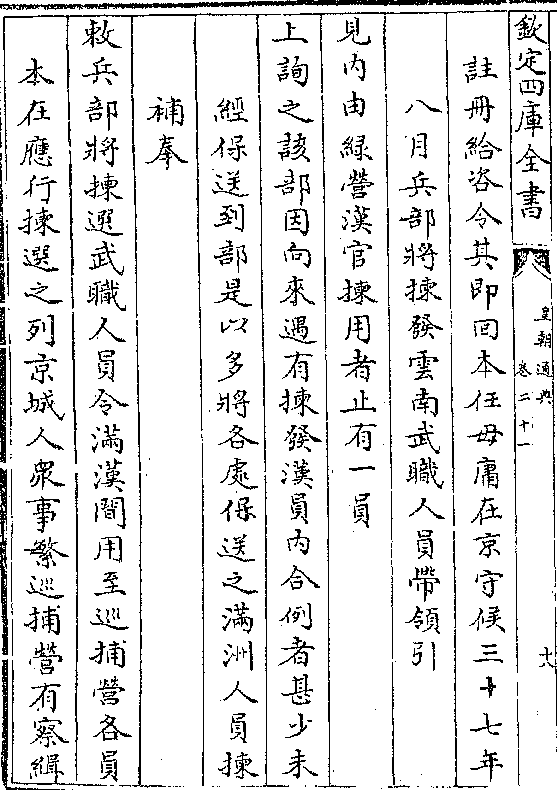 欽定四庫全書
皇朝通典
卷二十一
十六
註冊給咨令其即回本任毋庸在京守候三十七年
八月兵部將揀發雲南武職人員帶領引
見内由綠營漢官揀用者止有一員
上詢之該部因向來遇有揀發漢員内合例者甚少未
經保送到部是以多將各處保送之滿洲人員揀
補奉
敕兵部將揀選武職人員令滿漢間用至巡捕營各員
本在應行揀選之列京城人衆事繁巡捕營有察緝